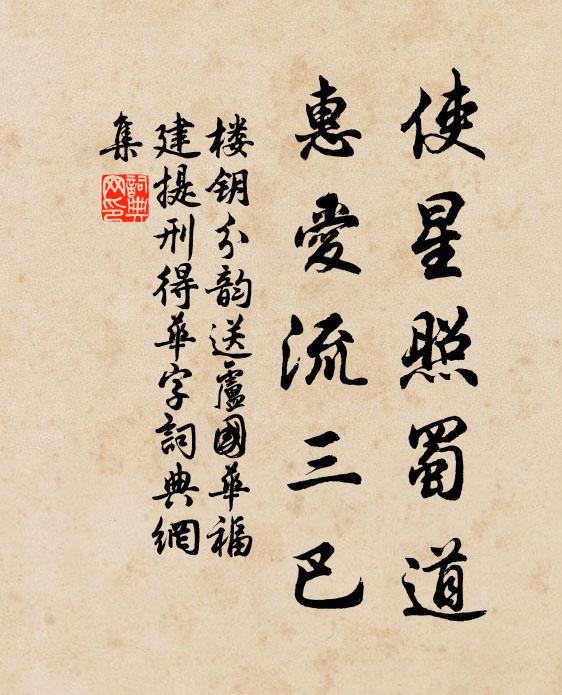 使星照蜀道
惠愛流三巴
楼钥分韵送盧國華福
建提刑得華字詞典網
集
詞典
网印